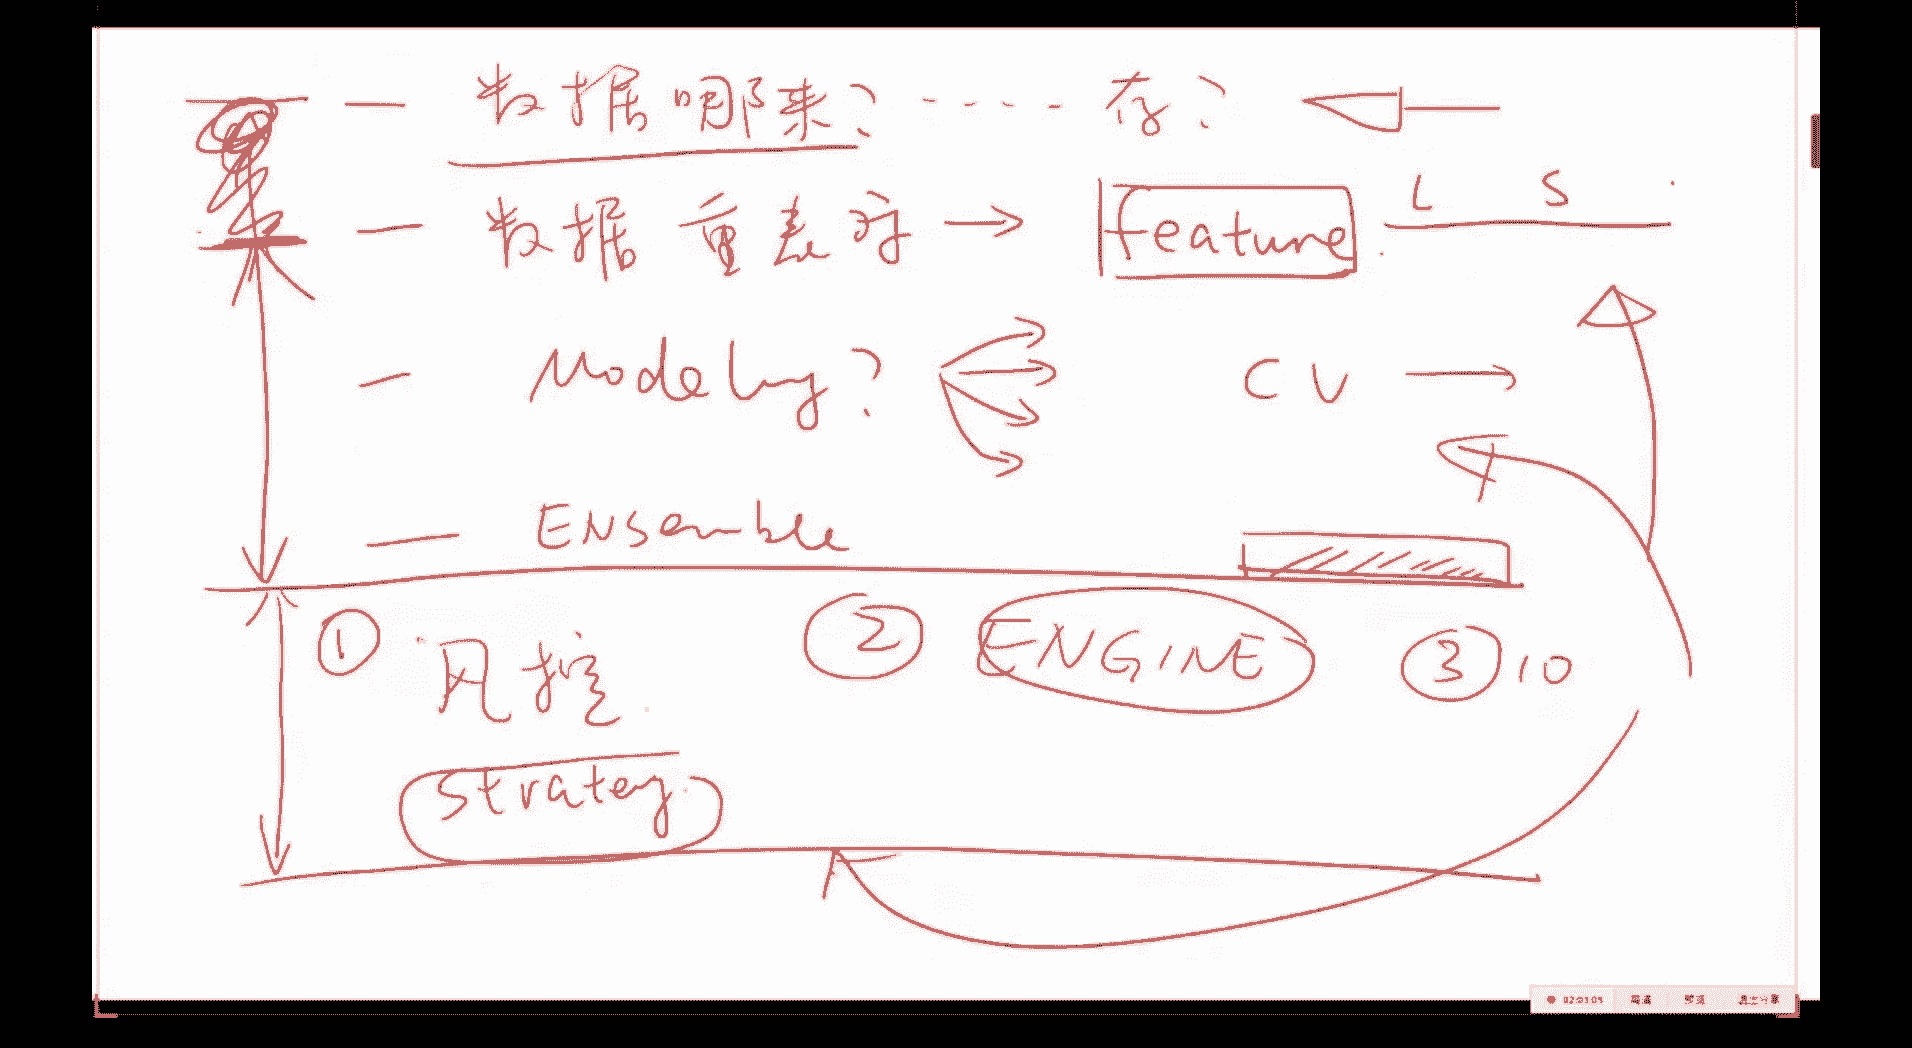 — 数据哪来? ···· 存?
— 数据重表示 → feature L S
— Modeling? CV →
— ENsemble
① 风控 ② ENGINE ③ 10
strategy
02:03:05